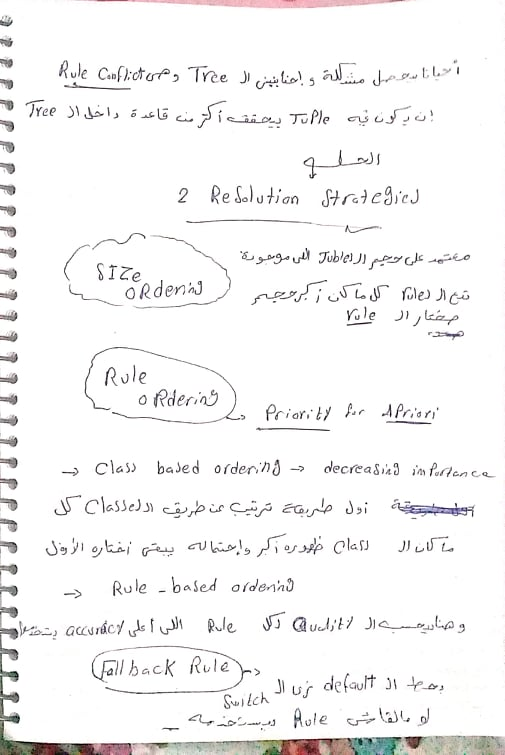 أحيانا بيحصل مشكلة و احنا بنبني ال Tree وهي Rule Conflict
ان يكون فيه Tuple بيحقق أكتر من قاعدة داخل ال Tree
الحل
2 Resolution Strategies
SIZe
ORdering
معتمد على حجم ال Tubles اللى موجودة
بتاع ال rules كل ما كان أكبر حجم
هختار ال rule
Rule
oRdering
→ Priority for APriori
→ Class based ordering → decreasing importance
أول طريقة ترتيب عن طريق ال Classes كل
ما كان ال Class ظهوره أكبر واحتماله يبقى اختاره الأول
→ Rule - based ordering
وهنا بحسب ال Quality لكل Rule اللى أعلى accuracy
Fall back Rule →
بحط ال default زى ال Switch
لو مالقاش Rule يستخدمه